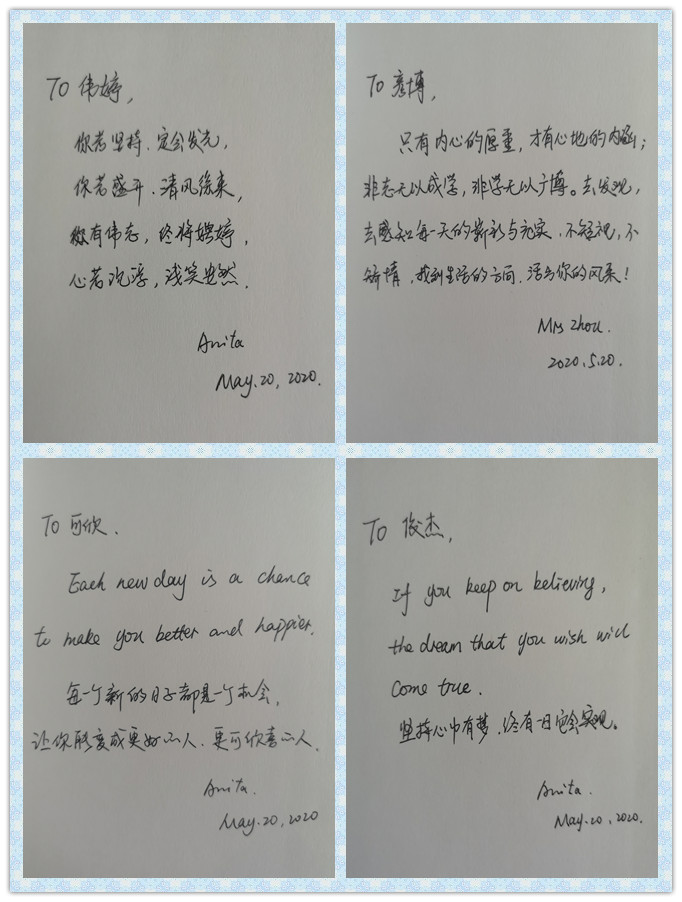 To 伟婷,
你若坚持、定会发光,
你若盛开、清风徐来,
纵有伟志, 终将娉婷,
心若沉浮, 浅笑安然.
Anita
May.20, 2020.
To 彦博,
只有内心的厚重, 才有心地的内涵;
非志无以成学, 非学无以广博。去发现,
去感知每一天的新彩与充实、不轻视, 不
矫情、找到生活的方向、活出你的风采!
Mrs Zhou.
2020.5.20.
To 可欣、
Each new day is a chance
to make you better and happier.
每一个新的日子都是一个机会,
让你蜕变成更好的人、更可欣喜的人.
Anita.
May.20, 2020
To 俊杰,
If you keep on believing,
the dream that you wish will
come true.
坚持心中有梦、终有一日定会实现。
Anita.
May.20, 2020.